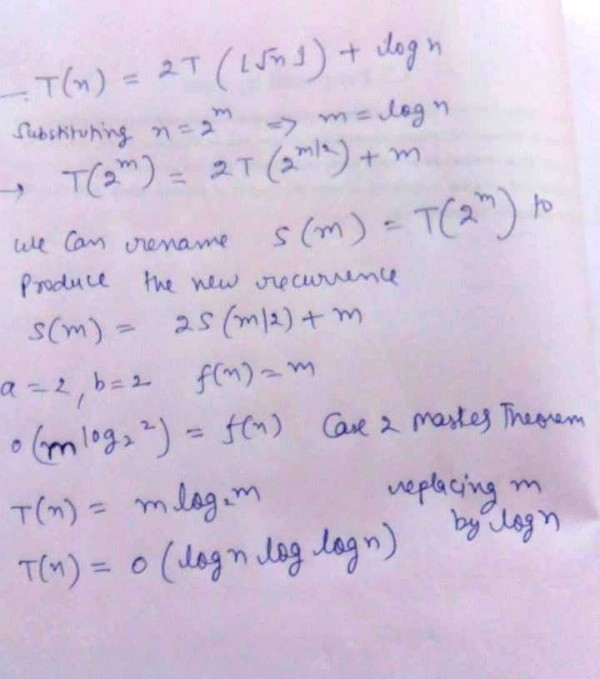 T(n) = 2T (⌊√n⌋) + log n
Substituting n = 2^m => m = log n
→ T(2^m) = 2T (2^{m/2}) + m
We Can rename S(m) = T(2^m) to
Produce the new recurrence
S(m) = 2S (m/2) + m
a = 2, b = 2 f(n) = m
O(m^{log_2 2}) = f(n) Case 2 Master Theorem
T(n) = m log_2 m replacing m
by log n
T(n) = O (log n log log n)